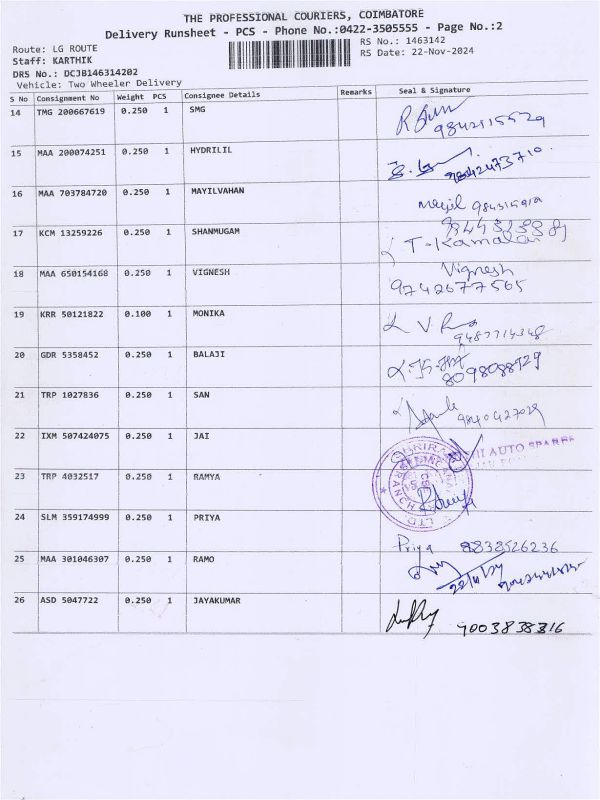 THE PROFESSIONAL COURIERS, COIMBATORE
Delivery Runsheet - PCS - Phone No.:0422-3505555 - Page No.:2
Route: LG ROUTE
RS No.: 1463142
Staff: KARTHIK
RS Date: 22-Nov-2024
DRS No.: DCJB146314202
Vehicle: Two Wheeler Delivery
S No Consignment No Weight PCS Consignee Details Remarks Seal & Signature
14 TMG 200667619 0.250 1 SMG
15 MAA 200074251 0.250 1 HYDRILIL
16 MAA 703784720 0.250 1 MAYILVAHAN
17 KCM 13259226 0.250 1 SHANMUGAM
T-Kamalan
18 MAA 650154168 0.250 1 VIGNESH Vignesh
9742677565
19 KRR 50121822 0.100 1 MONIKA
20 GDR 5358452 0.250 1 BALAJI
8098088729
21 TRP 1027836 0.250 1 SAN
22 IXM 507424075 0.250 1 JAI
AUTO SPARES
23 TRP 4032517 0.250 1 RAMYA
24 SLM 359174999 0.250 1 PRIYA
Priya 8838526236
25 MAA 301046307 0.250 1 RAMO
26 ASD 5047722 0.250 1 JAYAKUMAR
9003838316